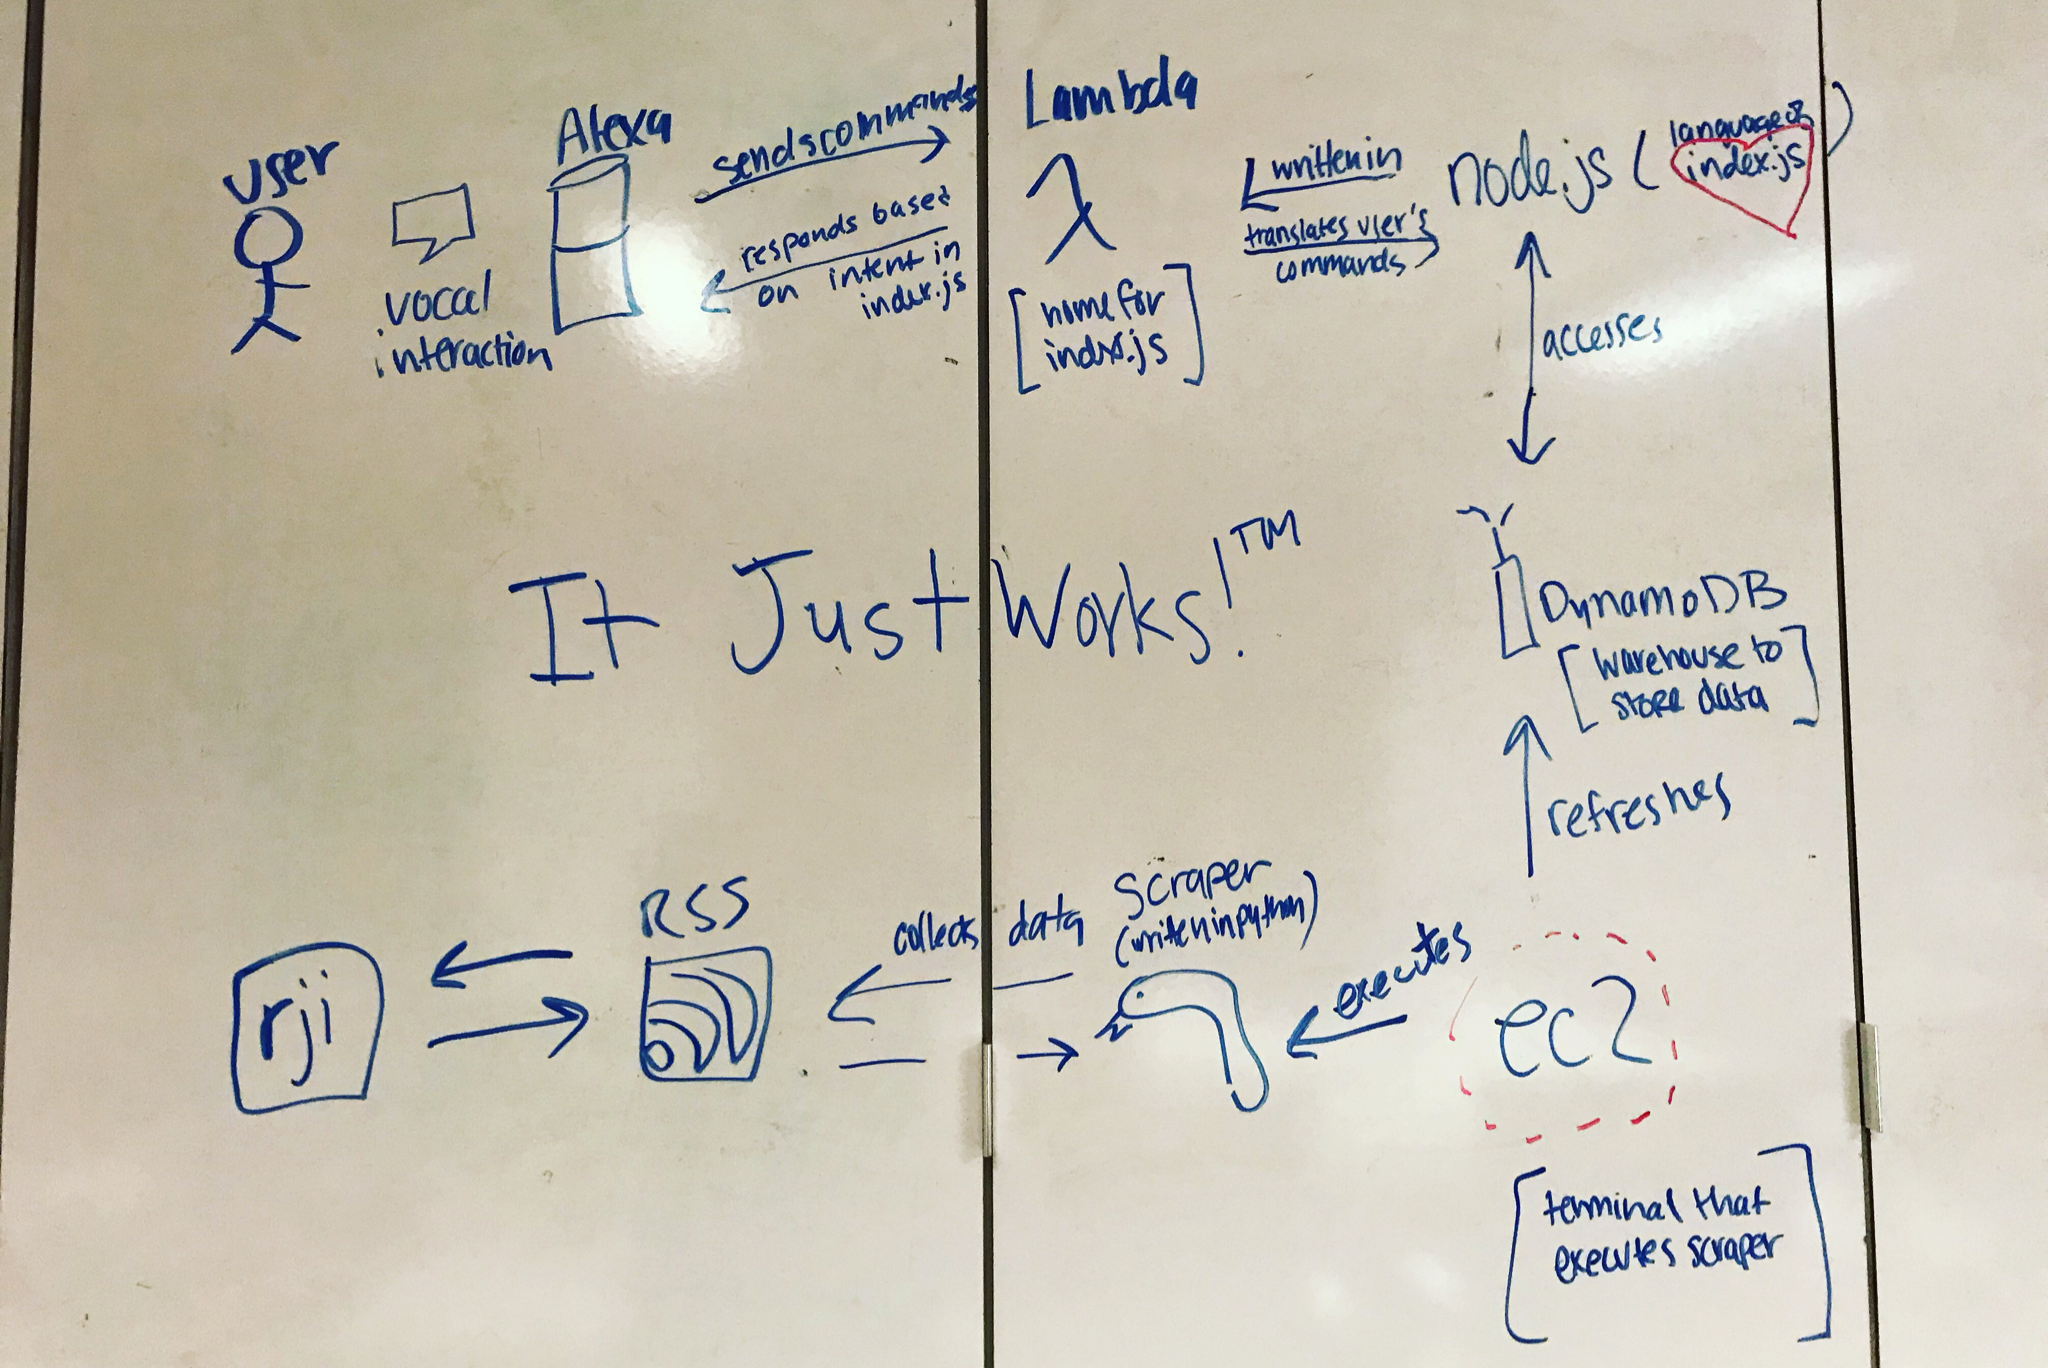 user
vocal
interaction
Alexa
sends commands
responds based
on intent in
index.js
Lambda
λ
[home for
index.js]
written in
translates user's
commands
node.js (language of
index.js)
accesses
It Just Works!™
DynamoDB
[warehouse to
store data]
refreshes
rji
RSS
collects data
Scraper
(writen in python)
executes
ec2
[terminal that
executes scraper]